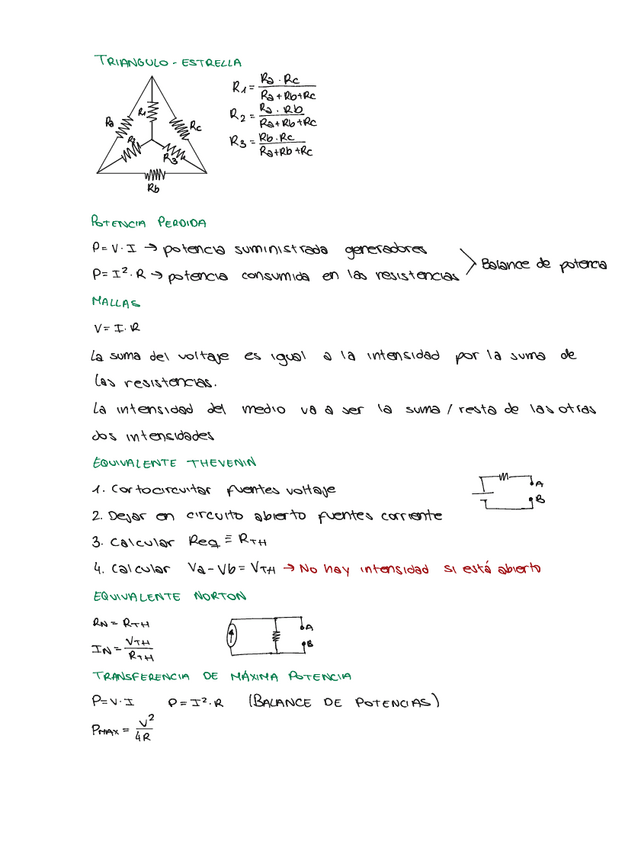 TRIANGULO - ESTRELLA
R1 = Ra · Rc / Ra + Rb + Rc
R2 = Ra · Rb / Ra + Rb + Rc
R3 = Rb · Rc / Ra + Rb + Rc
Ra
R1
Rc
R2
R3
Rb
POTENCIA PERDIDA
P = V · I → potencia suministrada generadores
P = I² · R → potencia consumida en las resistencias
Balance de potencia
MALLAS
V = I · R
La suma del voltaje es igual a la intensidad por la suma de
las resistencias.
La intensidad del medio va a ser la suma / resta de las otras
dos intensidades
EQUIVALENTE THEVENIN
1. Cortocircuitar fuentes voltaje
2. Dejar en circuito abierto fuentes corriente
3. Calcular Req ≡ RTH
4. Calcular Va - Vb = VTH → No hay intensidad si está abierto
A
B
EQUIVALENTE NORTON
RN = RTH
IN = VTH / RTH
A
B
TRANSFERENCIA DE MÁXIMA POTENCIA
P = V · I P = I² · R (BALANCE DE POTENCIAS)
PMAX = V² / 4R